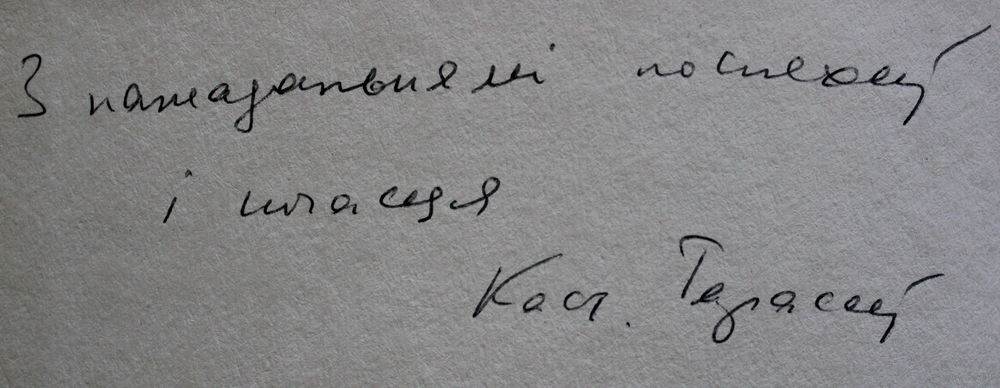 З пажаданьнямі поспехаў
і шчасця
Каст. Тарасаў